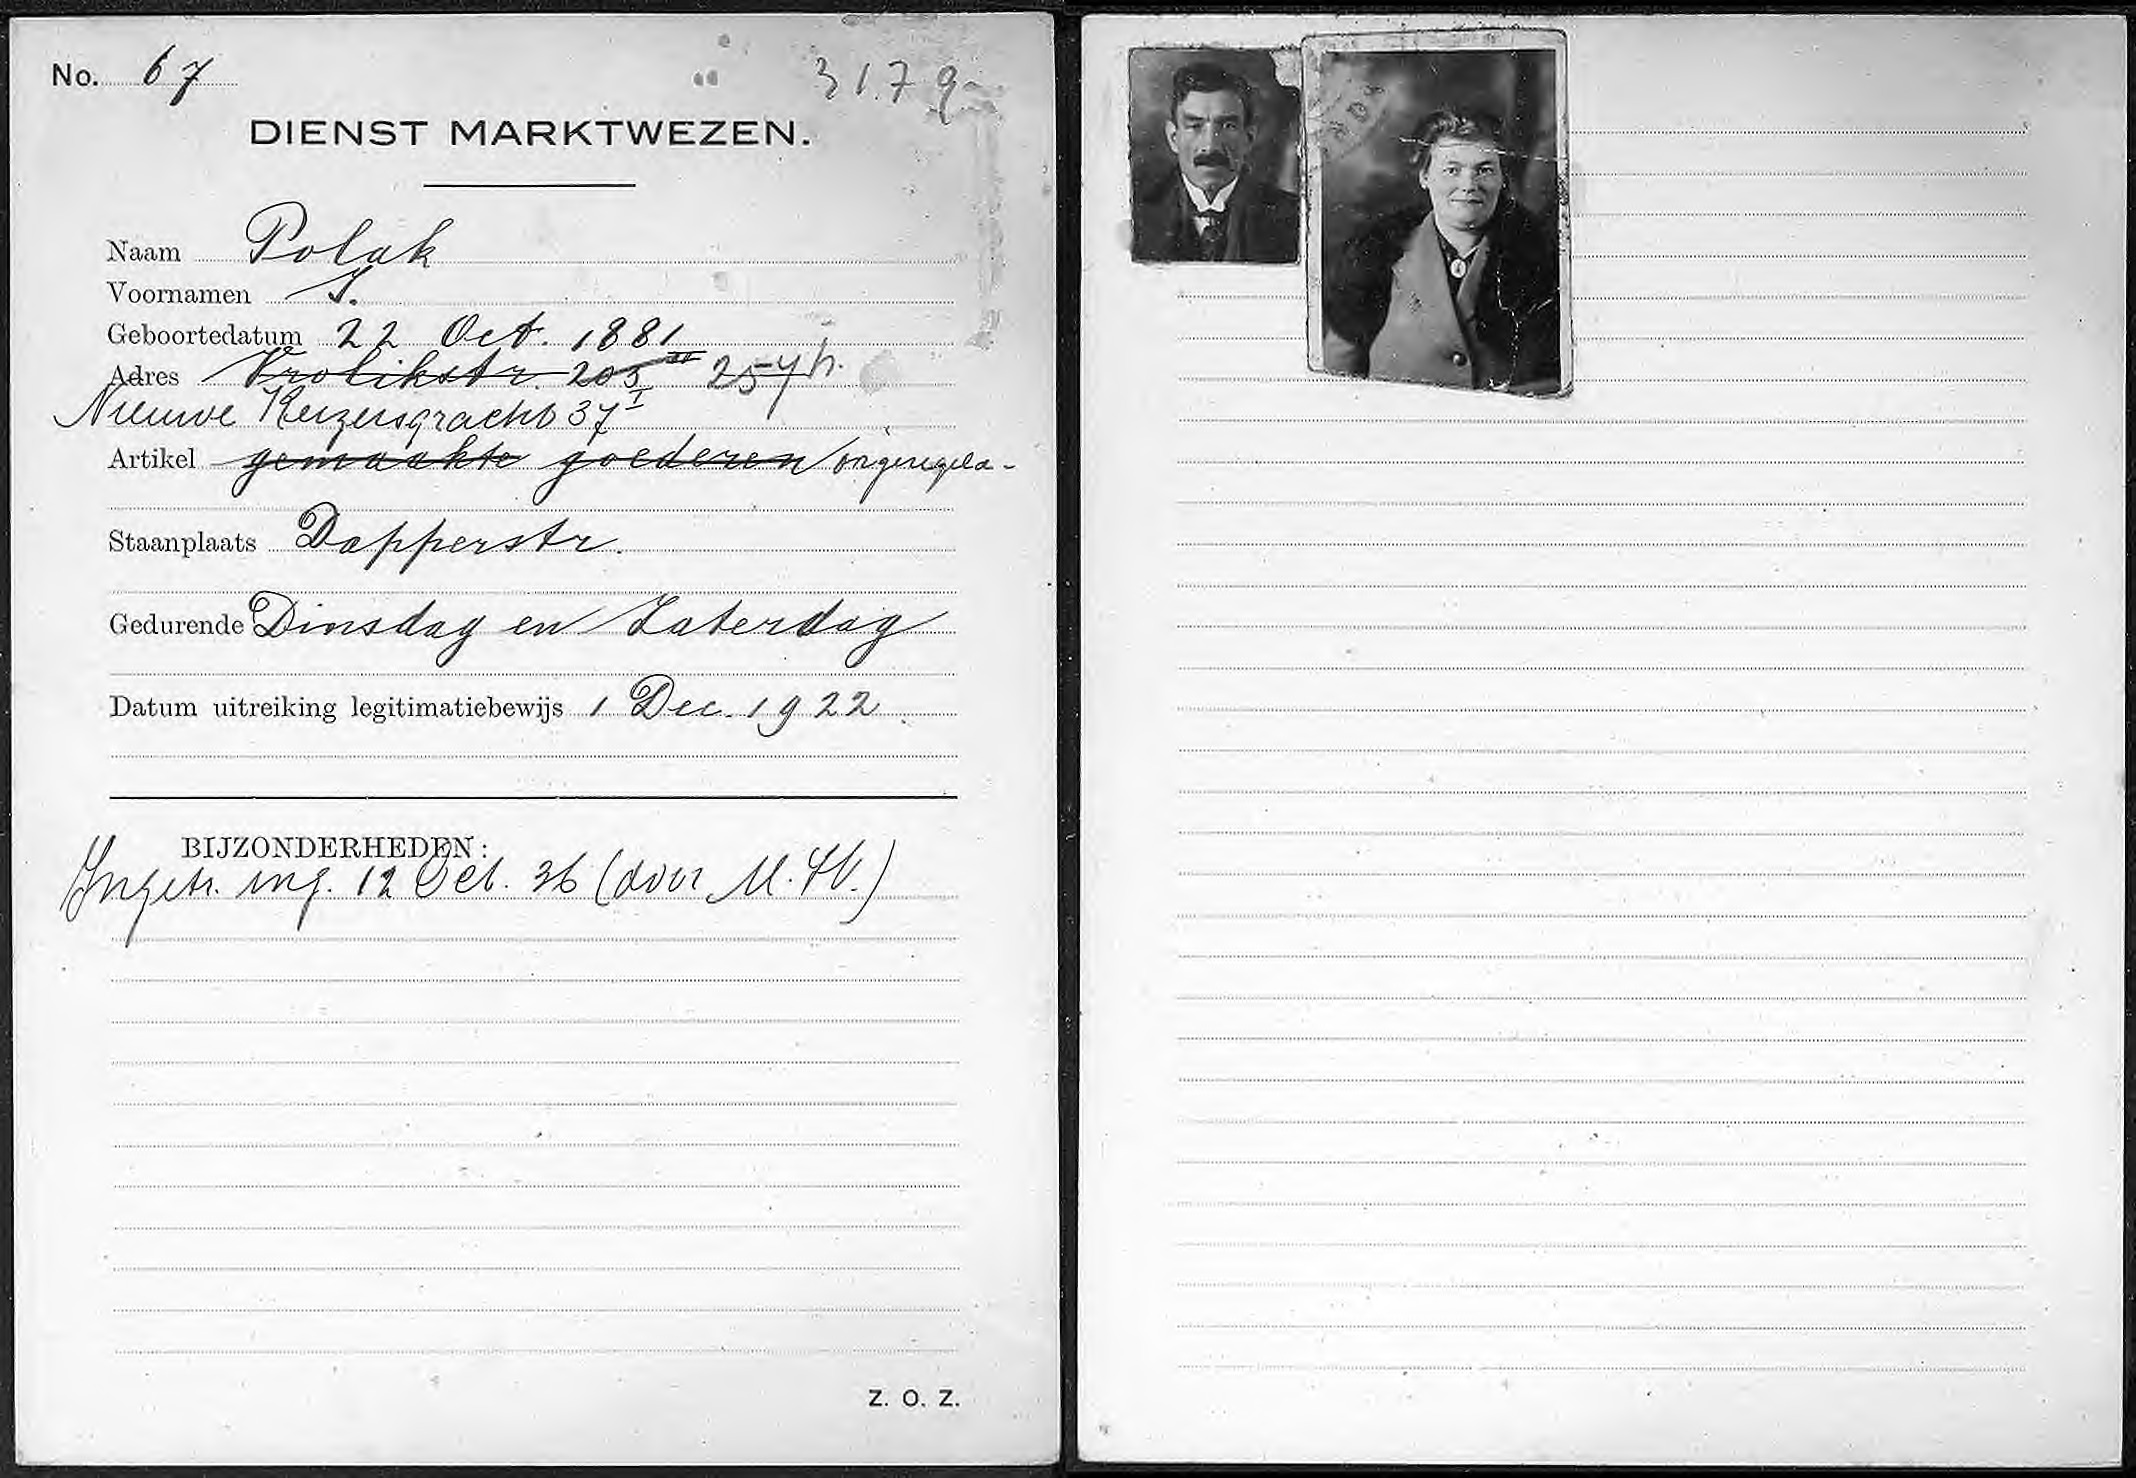 No. 67
3179
DIENST MARKTWEZEN.
Naam Polak
Voornamen I.
Geboortedatum 22 Oct. 1881
Adres Vrolikstr. 205 III 257 h.
Nieuwe Keizersgracht 37 I
Artikel gemaakte goederen ongeregeld
Staanplaats Dapperstr.
Gedurende Dinsdag en Zaterdag
Datum uitreiking legitimatiebewijs 1 Dec. 1922
BIJZONDERHEDEN:
Ingetr. ing. 12 Oct. 36 (door M.W.)
Z. O. Z.